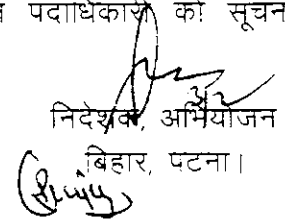 पदाधिकारी को सूचन
निदेशक, अभियोजन
बिहार, पटना।